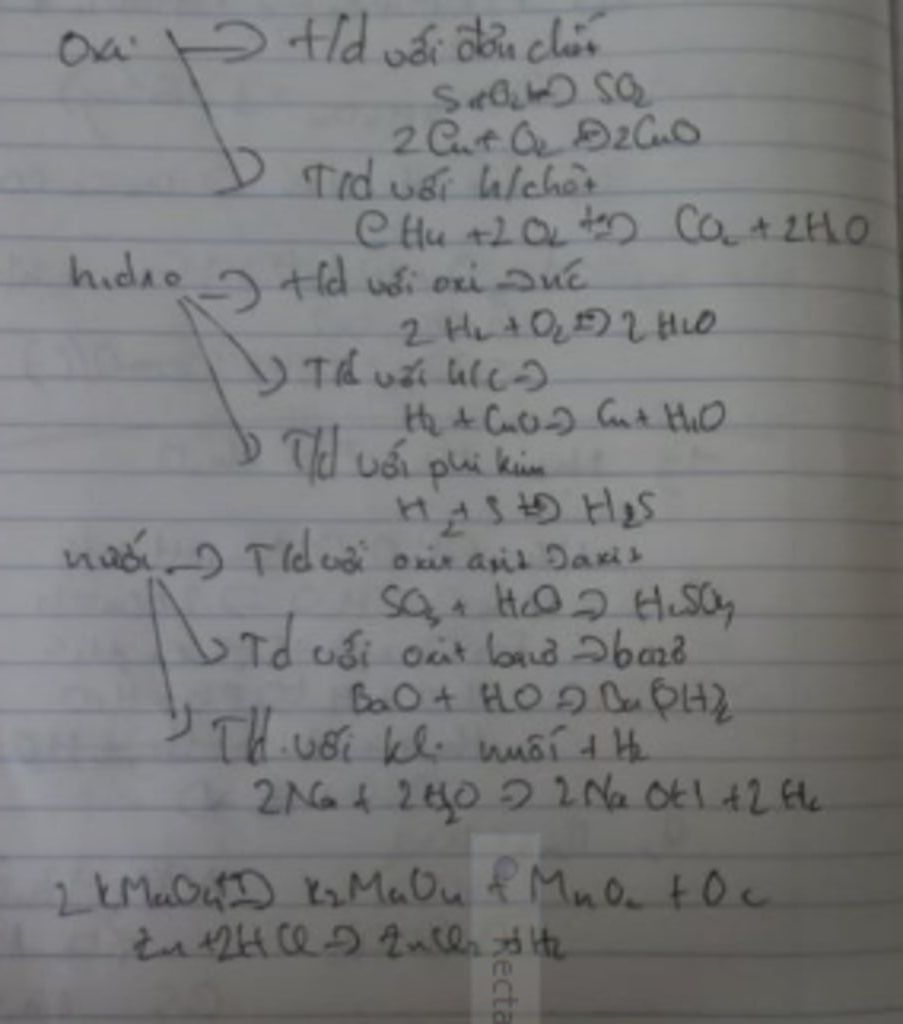 Oxi → t/d với đơn chất
S + O2 t°→ SO2
2Cu + O2 t°→ 2CuO
T/d với h/chất
CH4 + 2O2 t°→ CO2 + 2H2O
hidro → t/d với oxi → nc
2H2 + O2 t°→ 2H2O
T/d với h/c →
H2 + CuO → Cu + H2O
T/d với phi kim
H2 + S t°→ H2S
nước → T/d với oxit axit → axit
SO3 + H2O → H2SO4
Td với oxit bazơ → bazơ
BaO + HO → Ba(OH)2
Td với kl: muối + H2
2Na + 2H2O → 2NaOH + 2H2
2KMnO4 t°→ K2MnO4 + MnO2 + O2
Zn + 2HCl → ZnCl2 + H2
Recta